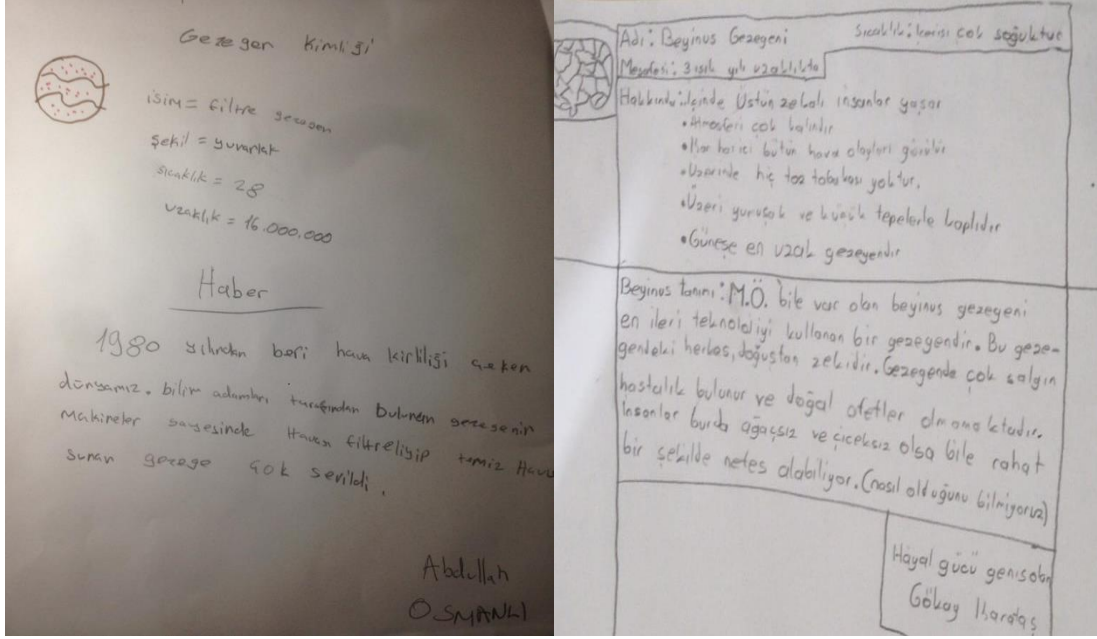 Gezegen Kimliği
isim = filtre gezegen
şekil = yuvarlak
sıcaklık = 28
uzaklık = 16.000.000
Haber
1980 yılından beri hava kirliliği çeken
dünyamız. bilim adamları tarafından bulunan gezegenin
Makineler sayesinde Havayı filtreliyip temiz Hava
sunan gezege çok sevildi.
Abdullah
OSMANLI
Adı: Beyinus Gezegeni
Sıcaklık: İçerisi çok soğuktur
Mesafesi: 3 ışık yılı uzaklıkta
Hakkında: içinde Üstün zekalı insanlar yaşar
• Atmosferi çok kalındır
• Kar harici bütün hava olayları görülür
• Üzerinde hiç toz tabakası yoktur.
• Üzeri yumuşak ve küçük tepelerle kaplıdır
• Güneşe en uzak gezegendir
Beyinus tanımı: M.Ö. bile var olan beyinus gezegeni
en ileri teknolojiyi kullanan bir gezegendir. Bu geze-
gendeki herkes, doğuştan zekidir. Gezegende çok salgın
hastalık bulunur ve doğal afetler olmamaktadır.
İnsanlar burda ağaçsız ve çiçeksiz olsa bile rahat
bir şekilde nefes alabiliyor. (nasıl olduğunu bilmiyoruz)
Hayal gücü geniş olan
Gökay Karataş